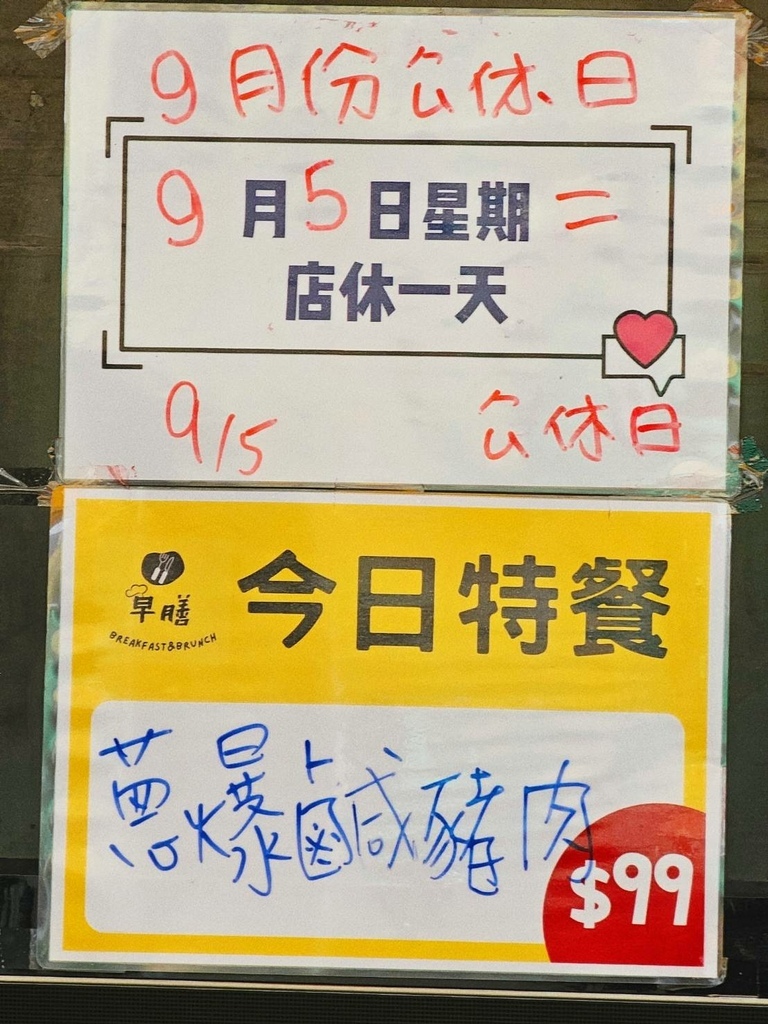 9月份公休日
9月5日星期二
店休一天
9/5 公休日
早膳
BREAKFAST&BRUNCH
今日特餐
蔥爆鹹豬肉
$99